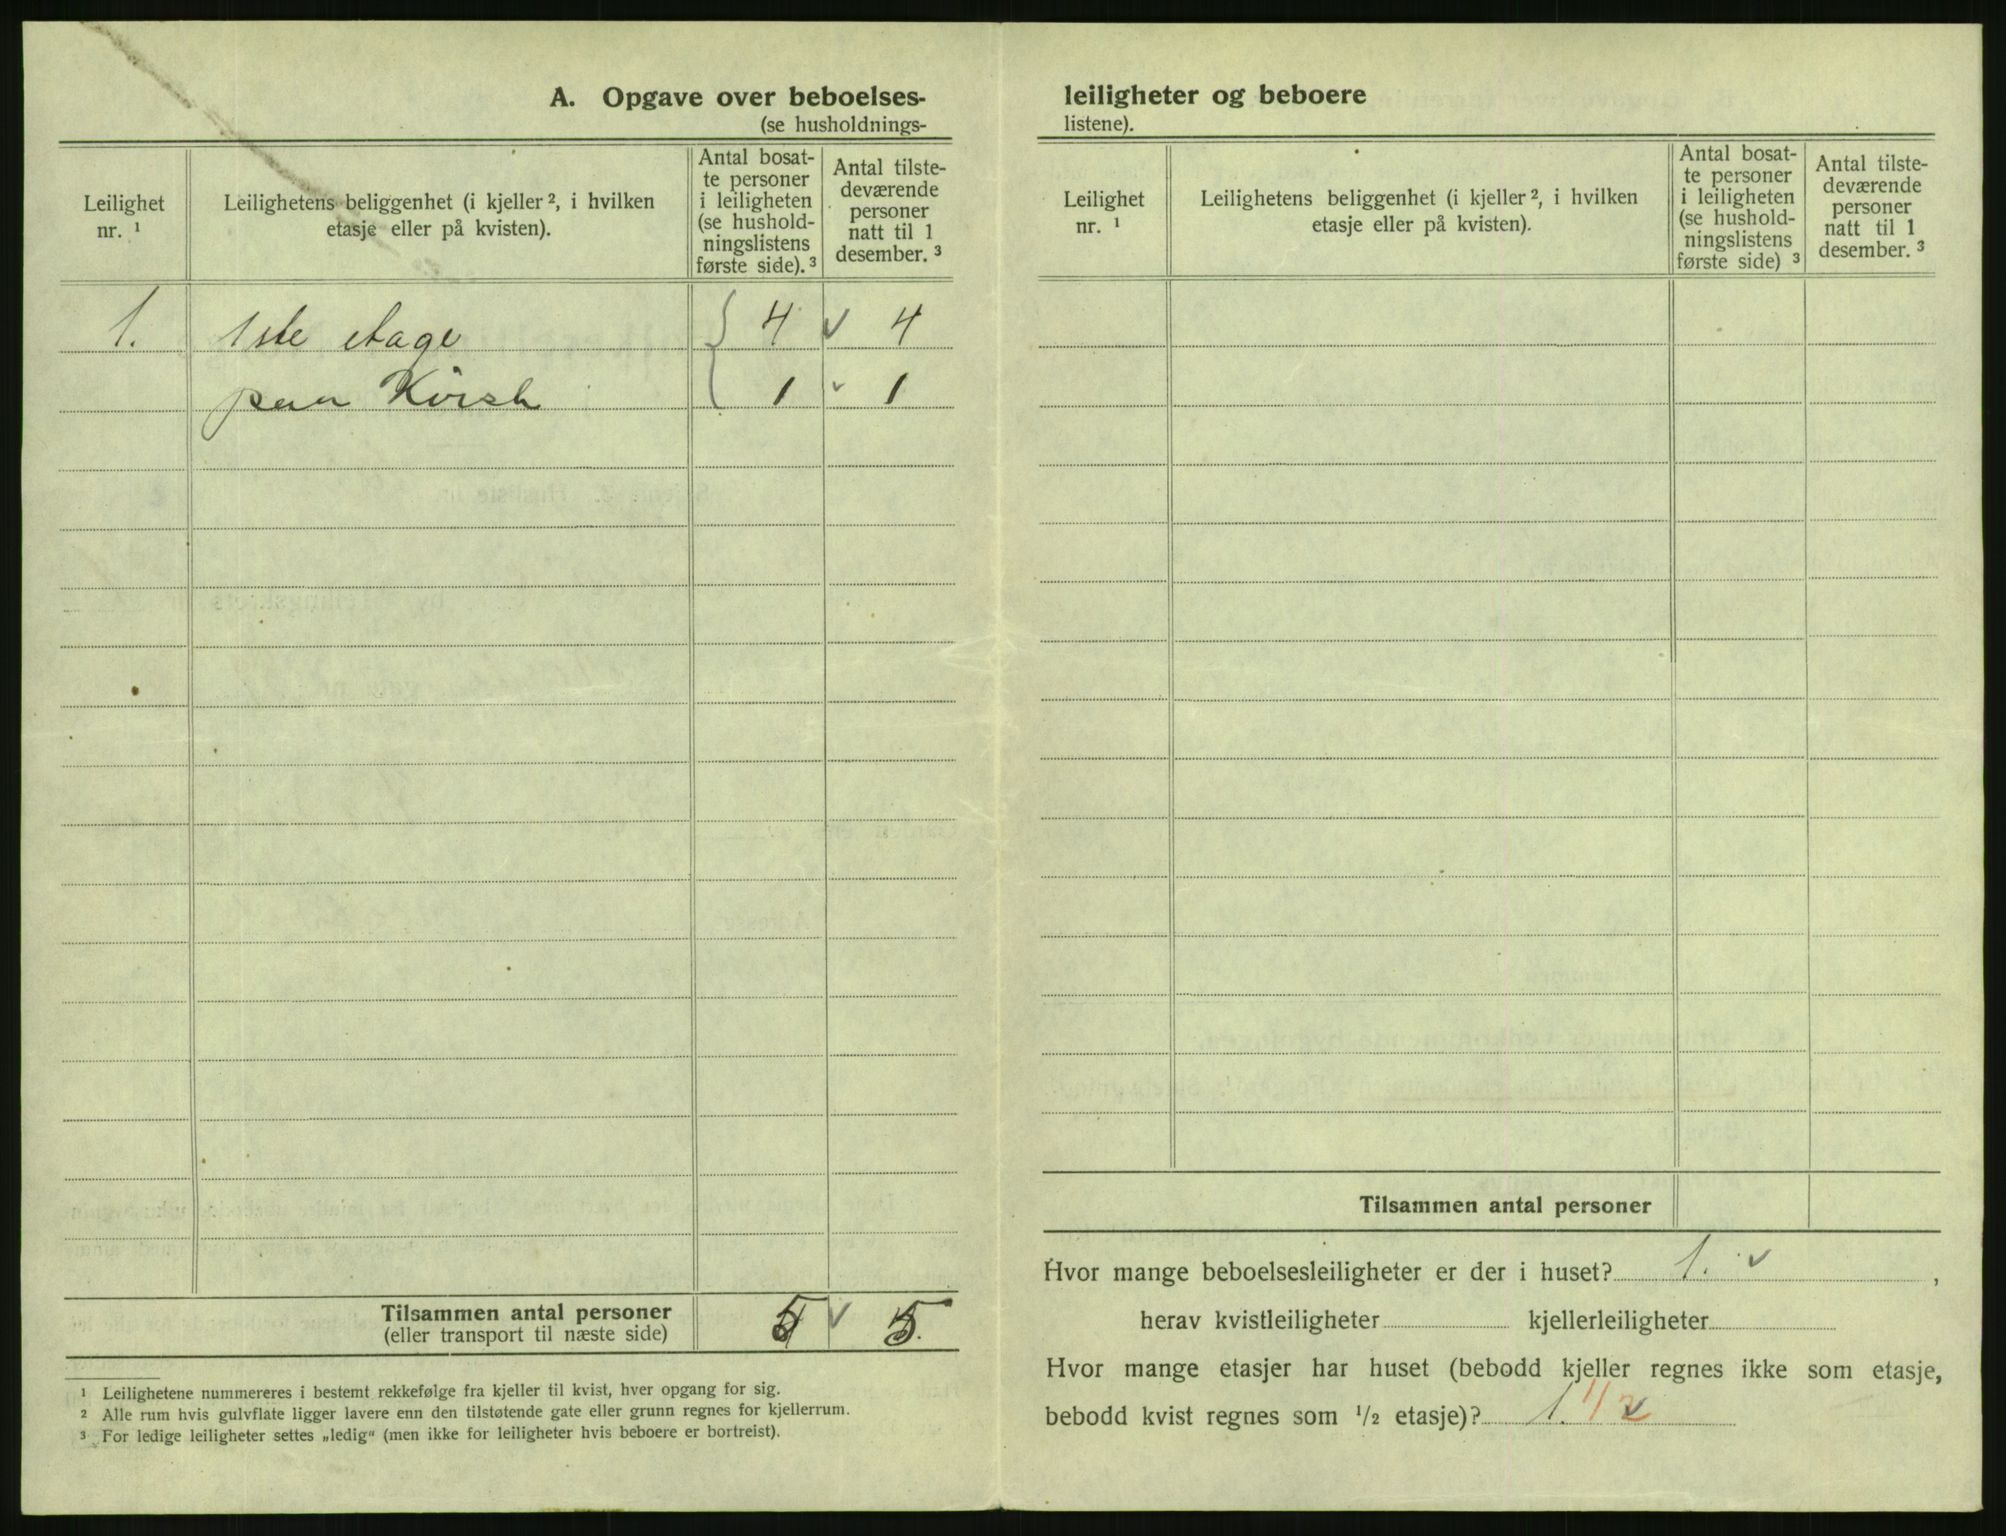 A. Opgave over beboelses-
(se husholdnings-
Leilighet
nr. ¹
Leilighetens beliggenhet (i kjeller ², i hvilken
etasje eller på kvisten).
Antal bosat-
te personer
i leiligheten
(se hushold-
ningslistens
første side). ³
Antal tilste-
deværende
personer
natt til 1
desember. ³
1. 1ste etage 4 4
paa Kvist 1 1
Tilsammen antal personer 5 5.
(eller transport til næste side)
¹ Leilighetene nummereres i bestemt rekkefølge fra kjeller til kvist, hver opgang for sig.
² Alle rum hvis gulvflate ligger lavere enn den tilstøtende gate eller grunn regnes for kjellerrum.
³ For ledige leiligheter settes „ledig“ (men ikke for leiligheter hvis beboere er bortreist).
leiligheter og beboere
listene).
Leilighet
nr. ¹
Leilighetens beliggenhet (i kjeller ², i hvilken
etasje eller på kvisten).
Antal bosat-
te personer
i leiligheten
(se hushold-
ningslistens
første side) ³
Antal tilste-
deværende
personer
natt til 1
desember. ³
Tilsammen antal personer
Hvor mange beboelsesleiligheter er der i huset? 1. ,
herav kvistleiligheter kjellerleiligheter
Hvor mange etasjer har huset (bebodd kjeller regnes ikke som etasje,
bebodd kvist regnes som ¹/₂ etasje)? 1. 1/2